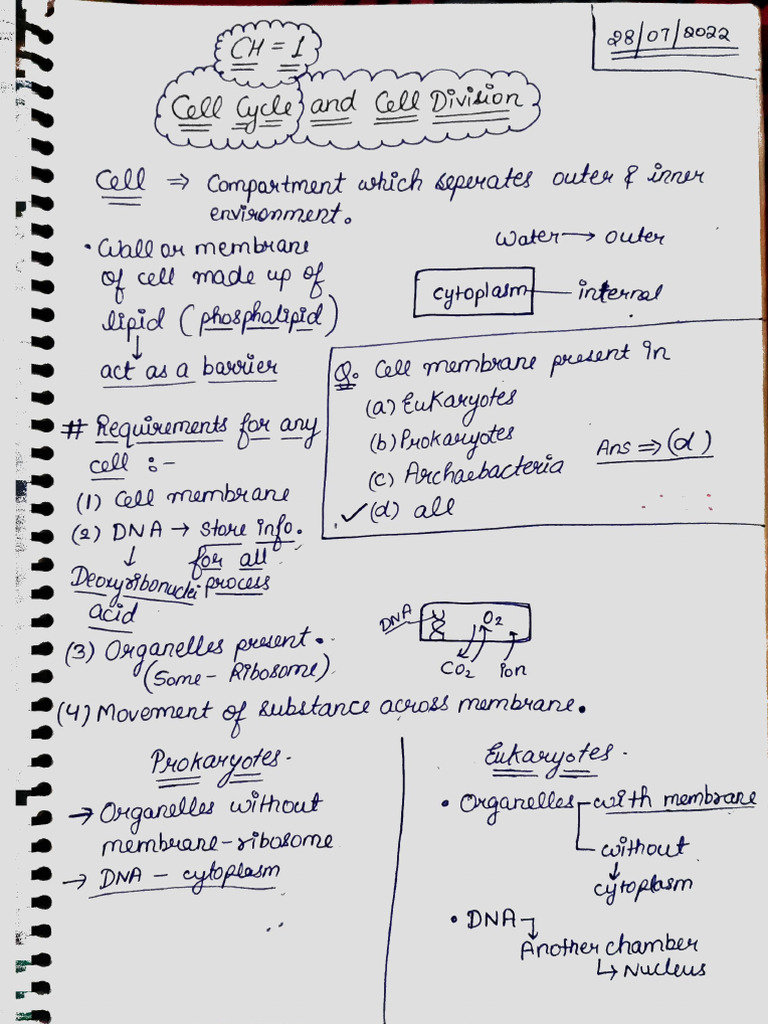 28/07/2022
CH = 1
Cell Cycle and Cell Division
Cell ⇒ Compartment which seperates outer & inner
environment.
• Wall or membrane
of cell made up of
lipid (phosphalipid)
↓
act as a barrier
Water → outer
cytoplasm — internal
Q. Cell membrane present in
(a) Eukaryotes
(b) Prokaryotes
(c) Archaebacteria
✓(d) all
Ans ⇒ (d)
# Requirements for any
cell :-
(1) Cell membrane
(2) DNA → store info.
for all
process
↓
Deoxyribonuclei
acid
(3) Organelles present.
(Some - Ribosome)
DNA
O2
CO2 ion
(4) Movement of substance across membrane.
Prokaryotes.
→ Organelles without
membrane-ribosome
→ DNA - cytoplasm
Eukaryotes.
• Organelles with membrane
without
↓
cytoplasm
• DNA
Another chamber
↳ Nucleus